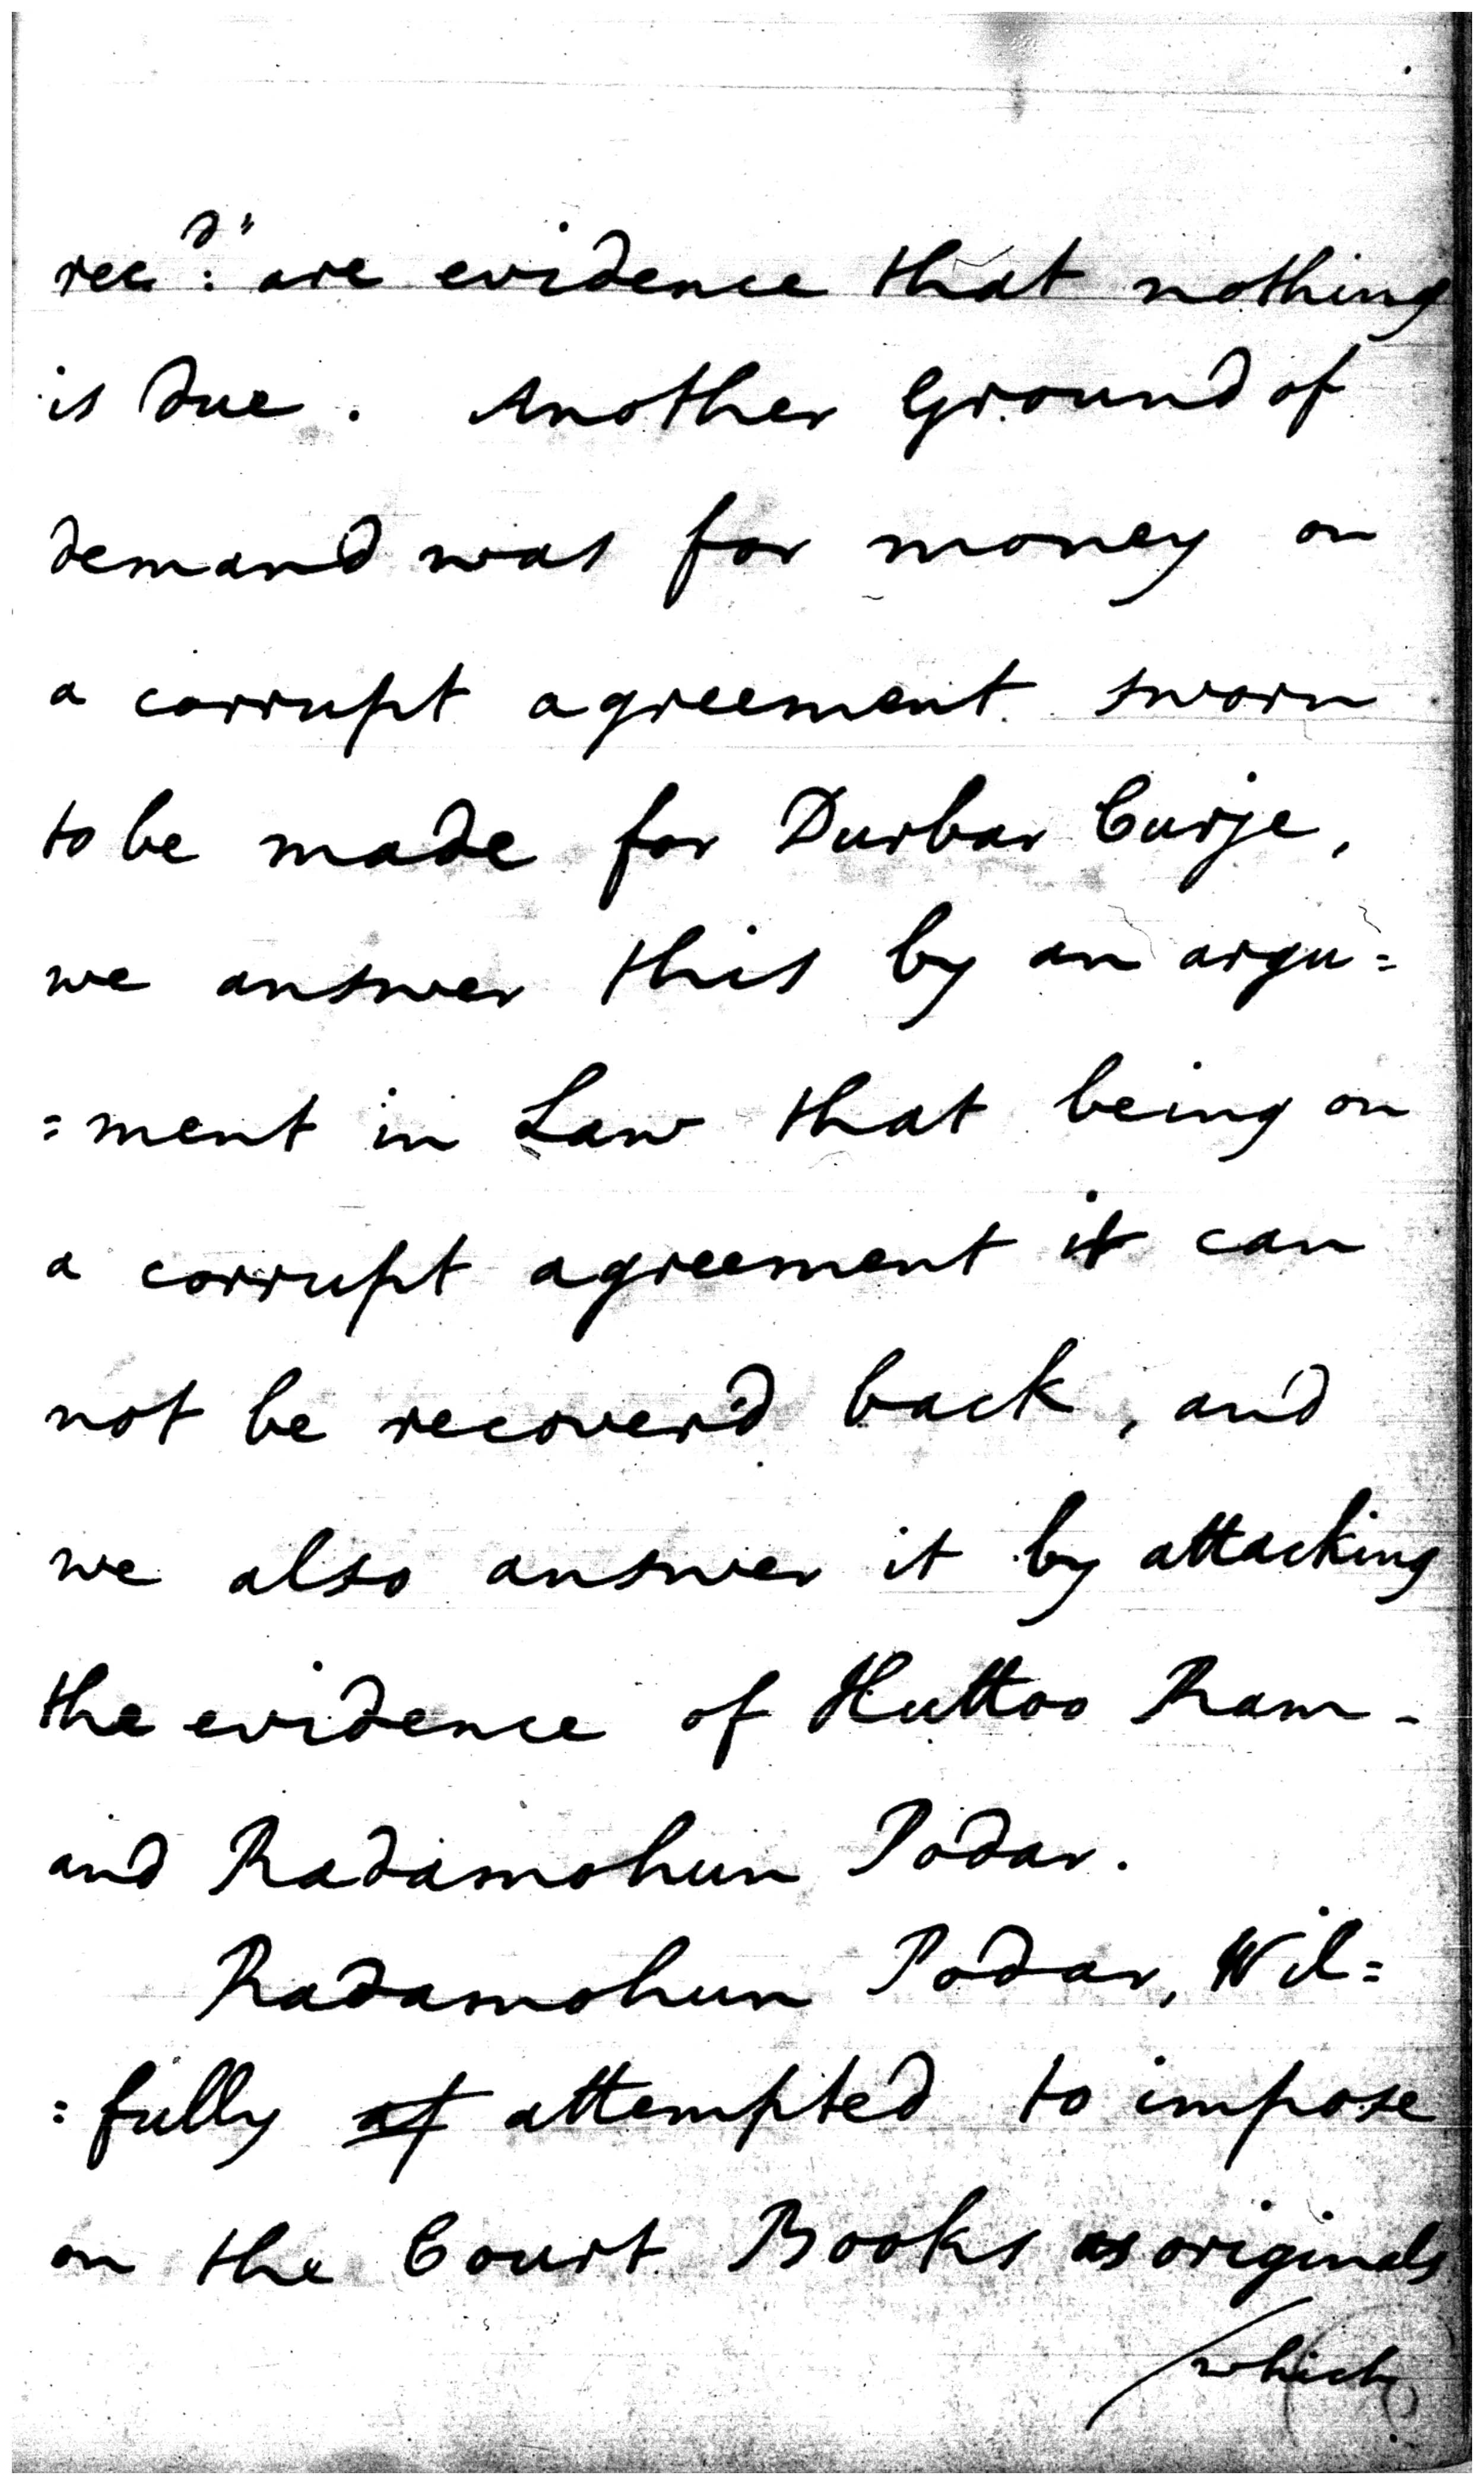 rec:d" are evidence that nothing
is due. Another Ground of
demand was for money on
a corrupt agreement sworn
to be made for Durbar Curje,
we answer this by an argu=
=ment in Law that being on
a corrupt agreement it can
not be recover'd back, and
we also answer it by attacking
the evidence of Huttoo Ram -
and Radamohun Podar.
Radamohun Podar, Wil=
=fully at attempted to impose
on the Court Books as originals
which